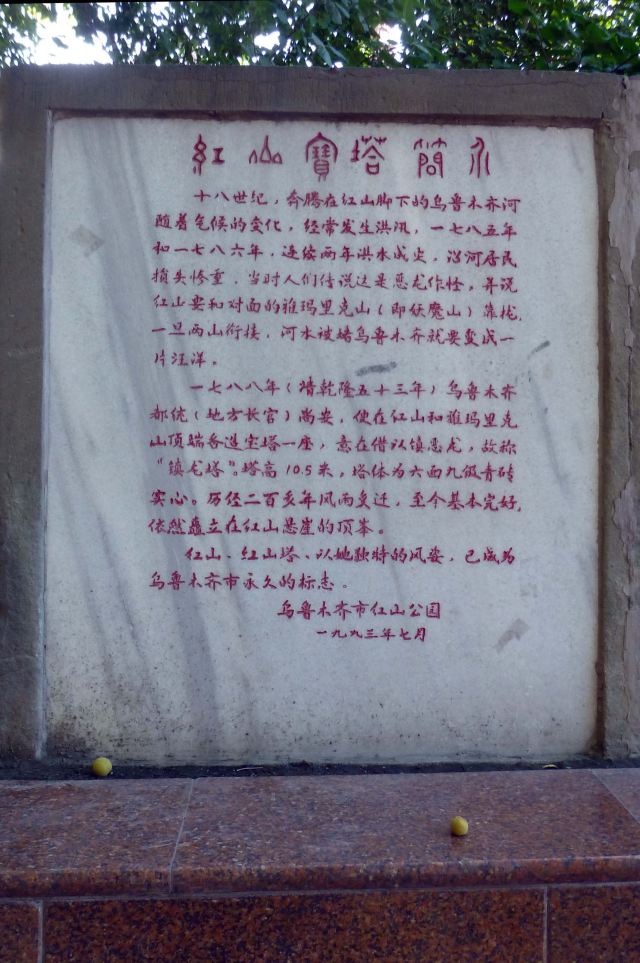 紅山寶塔簡介
十八世纪，奔腾在红山脚下的乌鲁木齐河
随着气候的变化，经常发生洪汛，一七八五年
和一七八六年，连续两年洪水成灾，沿河居民
损失惨重，当时人们传说这是恶龙作怪，并说
红山要和对面的雅玛里克山（即妖魔山）靠拢，
一旦两山衔接，河水被堵乌鲁木齐就要变成一
片汪洋。
一七八八年（清乾隆五十三年）乌鲁木齐
都统（地方长官）尚安，便在红山和雅玛里克
山顶端各造宝塔一座，意在借以镇恶龙，故称
“镇龙塔”。塔高10.5米，塔体为六面九级青砖
实心。历经二百多年风雨变迁，至今基本完好，
依然矗立在红山悬崖的顶峯。
红山、红山塔、以她独特的风姿，已成为
乌鲁木齐市永久的标志。
乌鲁木齐市红山公园
一九九三年七月